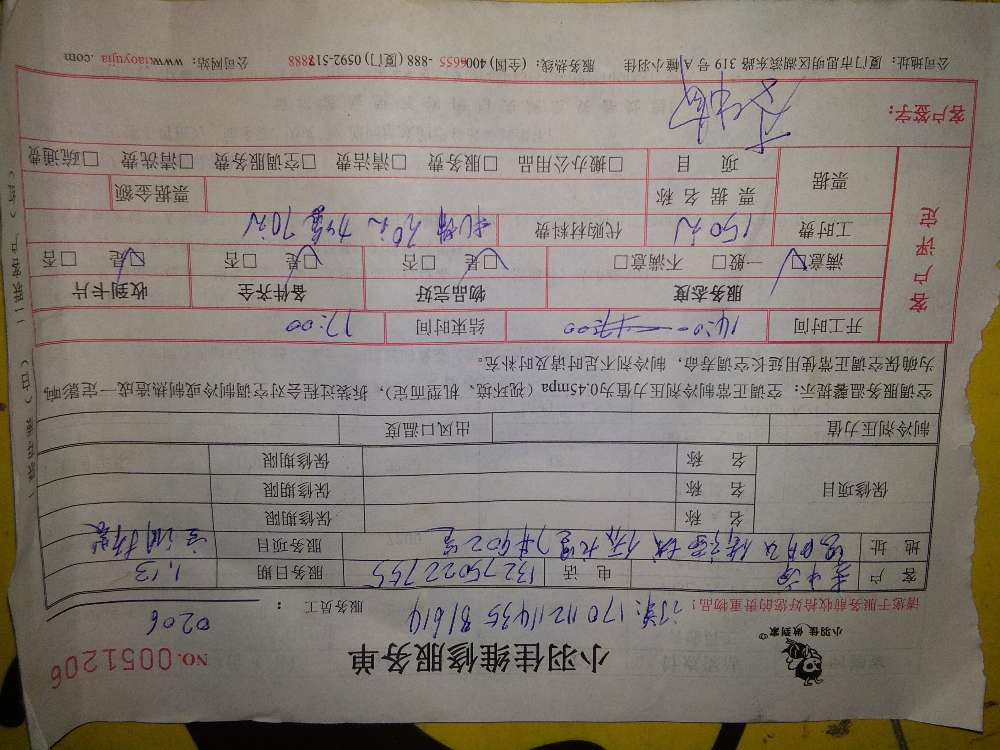 小羽佳 做到家
小羽佳维修服务单
NO. 0051206
请您于服务前收拾好您的贵重物品!
订单: 17011211435581614
服务员工: 0206
客户
电话 13275022755
服务日期 1.13
地址
服务项目 空调拆装
保修项目
名称 保修期限
名称 保修期限
名称 保修期限
制冷剂压力值 出风口温度
空调服务温馨提示: 空调正常制冷剂压力值为0.45mpa (视环境、机型而定), 拆装过程会对空调制冷或制热造成一定影响,
为确保空调正常使用延长空调寿命, 制冷剂不足时请及时补充。
开工时间 14:00 17:00 结束时间 17:00
客户评定
服务态度 物品完好 备件齐全 收到卡片
满意□ 一般□ 不满意□ □是 □否 □是 □否 □是 □否
工时费 150元 代购材料费 70元
票据 票据名称 票据金额
项目 □搬办公用品 □服务费 □清洁费 □空调服务费 □清洗费 □疏通费
客户签字:
公司地址: 厦门市思明区湖滨东路 319 号 A 幢小羽佳 服务热线: (全国) 400-6655-888 (厦门) 0592-5178888 公司网站: www.xiaoyujia.com